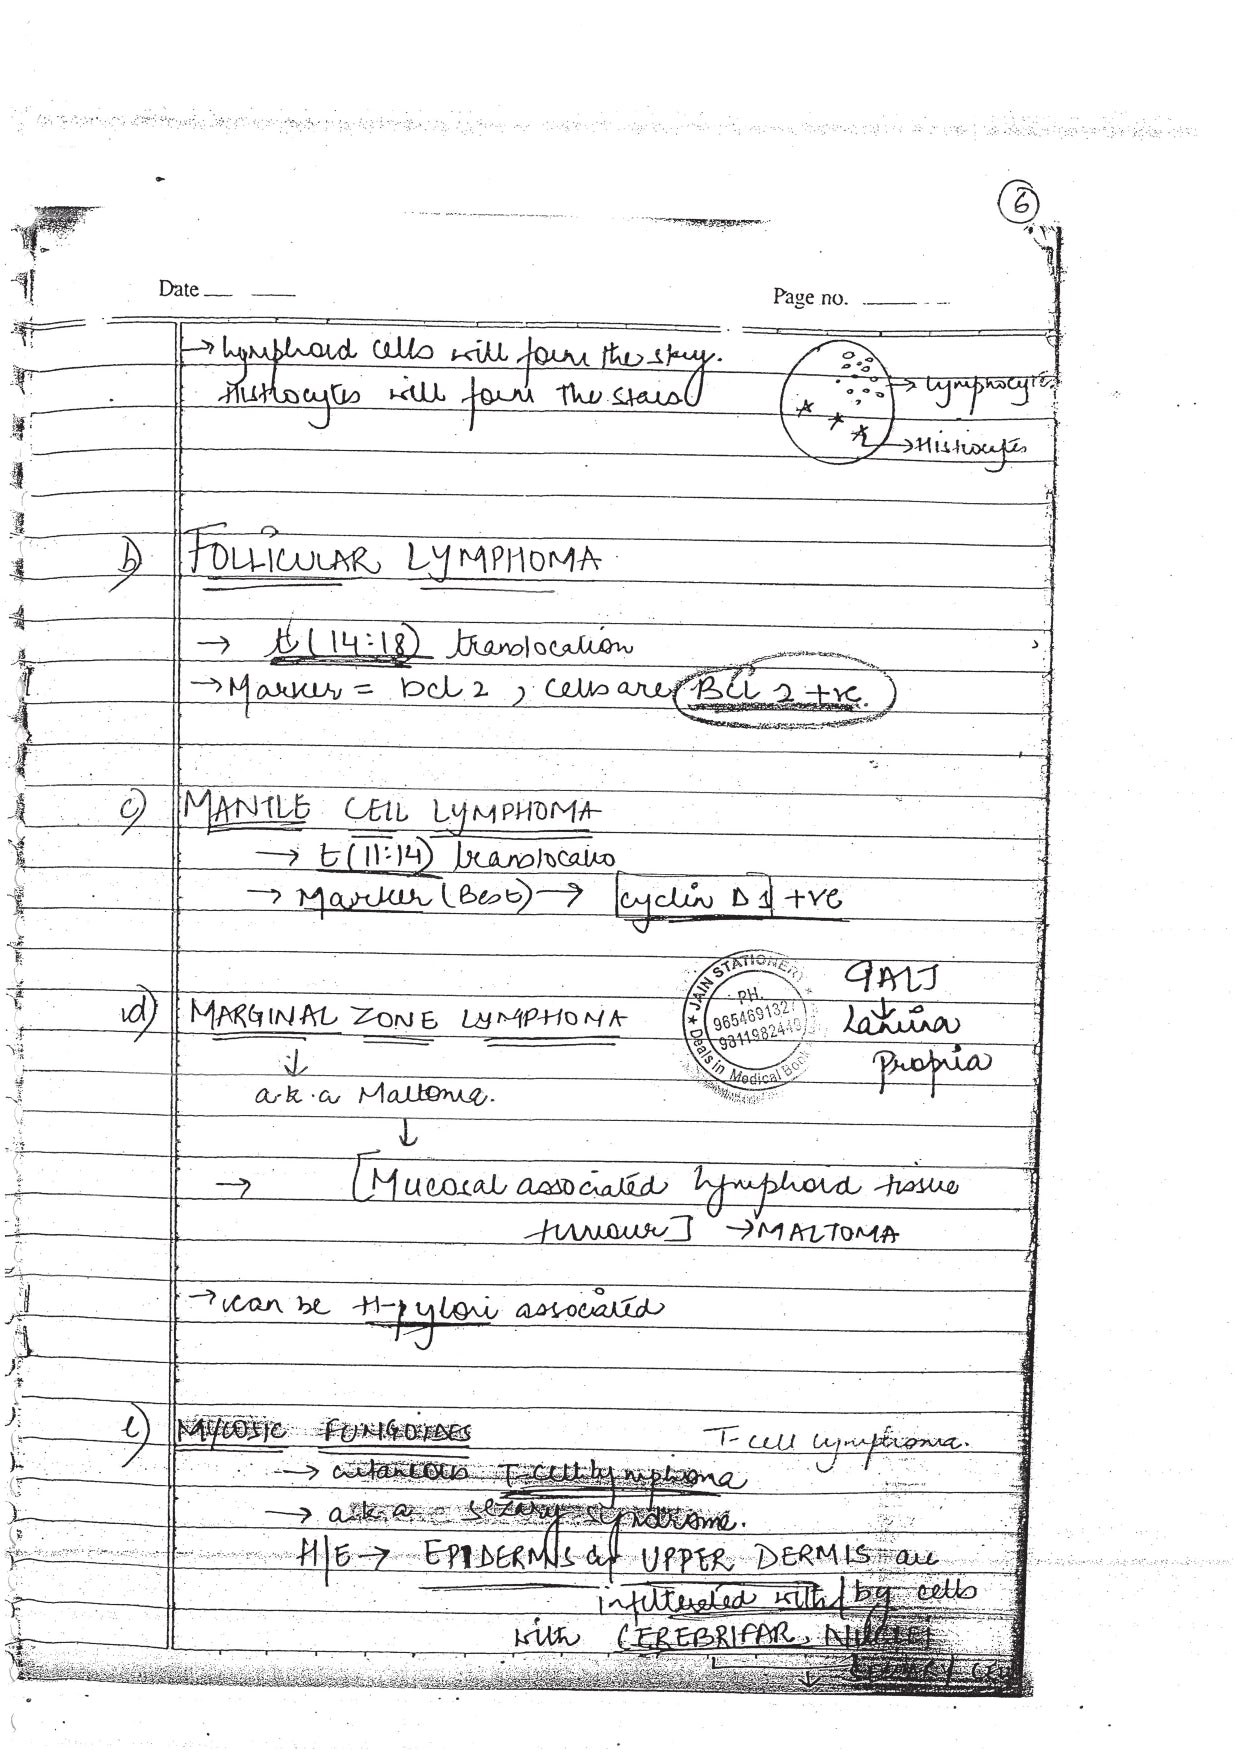 6
Date
Page no.
→ Lymphoid cells will form the sky.
Histiocytes will form the stars
→ Lymphocytes
→ Histiocytes
b) FOLLICULAR LYMPHOMA
→ t(14:18) translocation
→ Marker = bcl 2, cells are BCl 2 +ve.
c) MANTLE CELL LYMPHOMA
→ t(11:14) translocatio
→ Marker (Best) → cyclin D1 +ve
JAIN STATIONERY
PH.
Deals in Medical Book
GALT
↓
Lamina
Propria
d) MARGINAL ZONE LYMPHOMA
↓
a.k.a Maltoma.
↓
→ [Mucosal associated lymphoid tissue
tumour] → MALTOMA
→ can be H-pylori associated
e) MYCOSIC FUNGOIDES
T-cell lymphoma.
→ cutaneous T-cell lymphoma
→ a.k.a - sezary syndrome.
H/E → EPIDERMIS & UPPER DERMIS are
infiltereted with/by cells
with CEREBRIFAR, NUCLEI
↓